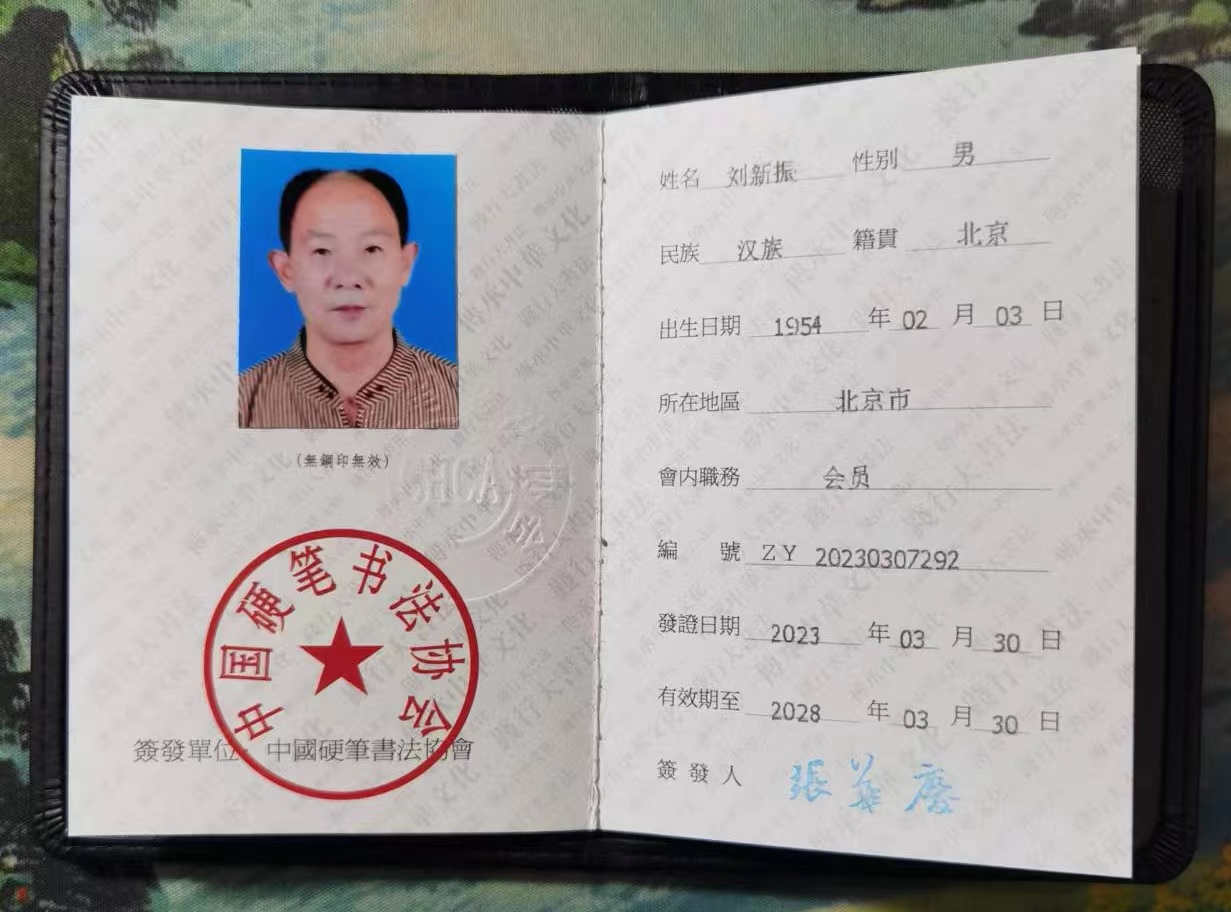 (無鋼印無效)
CHCA
中国硬笔书法协会
簽發單位：中國硬筆書法協會
姓名 刘新振 性别 男
民族 汉族 籍貫 北京
出生日期 1954 年 02 月 03 日
所在地區 北京市
會内職務 会员
編號 ZY 20230307292
發證日期 2023 年 03 月 30 日
有效期至 2028 年 03 月 30 日
簽發人 張華慶